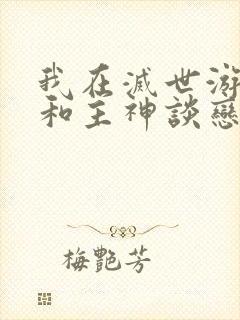 我在滅世游
和主神談戀
梅艷芳